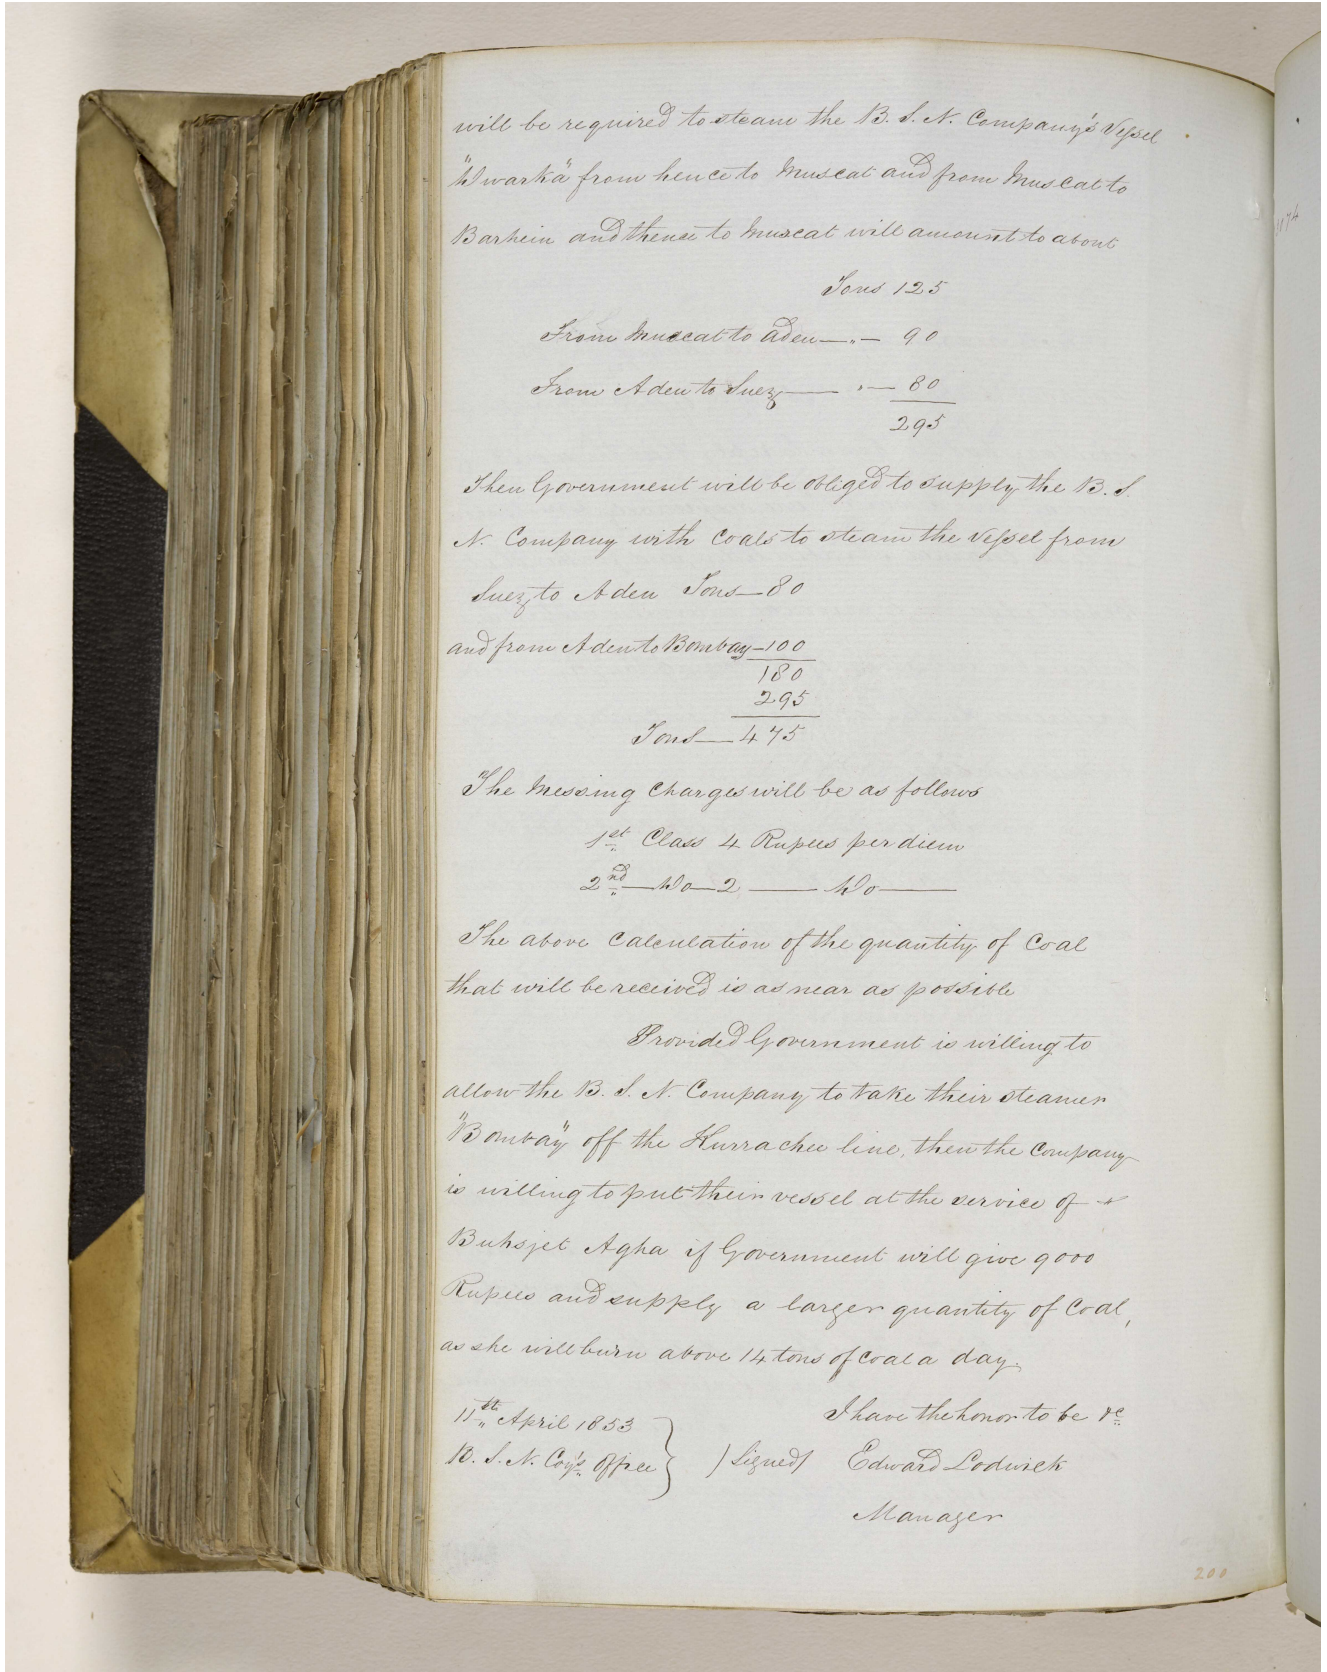 will be required to steam the B. S. N. Company's Vessel
"Dwarka" from hence to Muscat and from Muscat to
Barhein and thence to Muscat will amount to about
Tons 125
From Muscat to Aden —„— 90
From Aden to Suez —— „— 80
295
Then Government will be obliged to supply the B. S.
N. Company with Coals to steam the Vessel from
Suez to Aden Tons — 80
and from Aden to Bombay — 100
180
295
Tons — 475
The Messing Charges will be as follows
1st Class 4 Rupees per diem
2nd — Do — 2 —— Do ——
The above Calculation of the quantity of Coal
that will be received is as near as possible
Provided Government is willing to
allow the B. S. N. Company to take their steamer
"Bombay" off the Kurrachee line, then the Company
is willing to put their vessel at the service of
Buhsjet Agha if Government will give 9000
Rupees and supply a larger quantity of Coal,
as she will burn above 14 tons of Coal a day.
I have the honor to be &c
11th April 1853
B. S. N. Coy's Office } /Signed/ Edward Lodwick
Manager
200